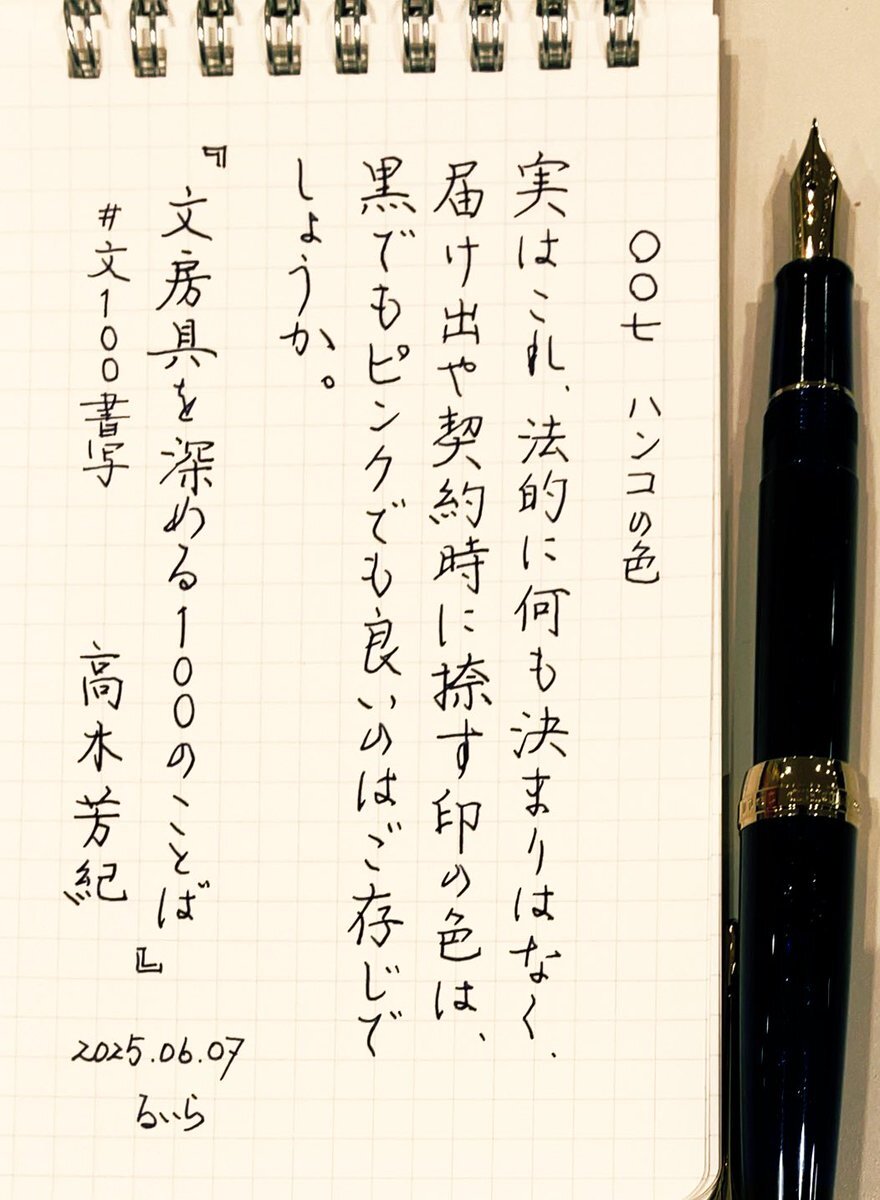 〇〇七　ハンコの色
実はこれ、法的に何も決まりはなく、
届け出や契約時に捺す印の色は、
黒でもピンクでも良いのはご存じで
しょうか。
『文房具を深める100のことば』
#文100書写　高木芳紀
2025.06.07
るいら